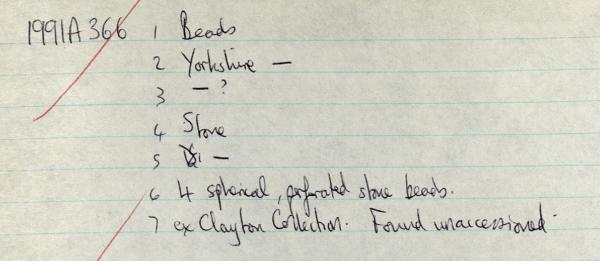 1991A366 1 Beads
2 Yorkshire —
3 — ?
4 Stone
5 —
6 4 spherical, perforated stone beads.
7 ex Clayton Collection. Found unaccessioned.